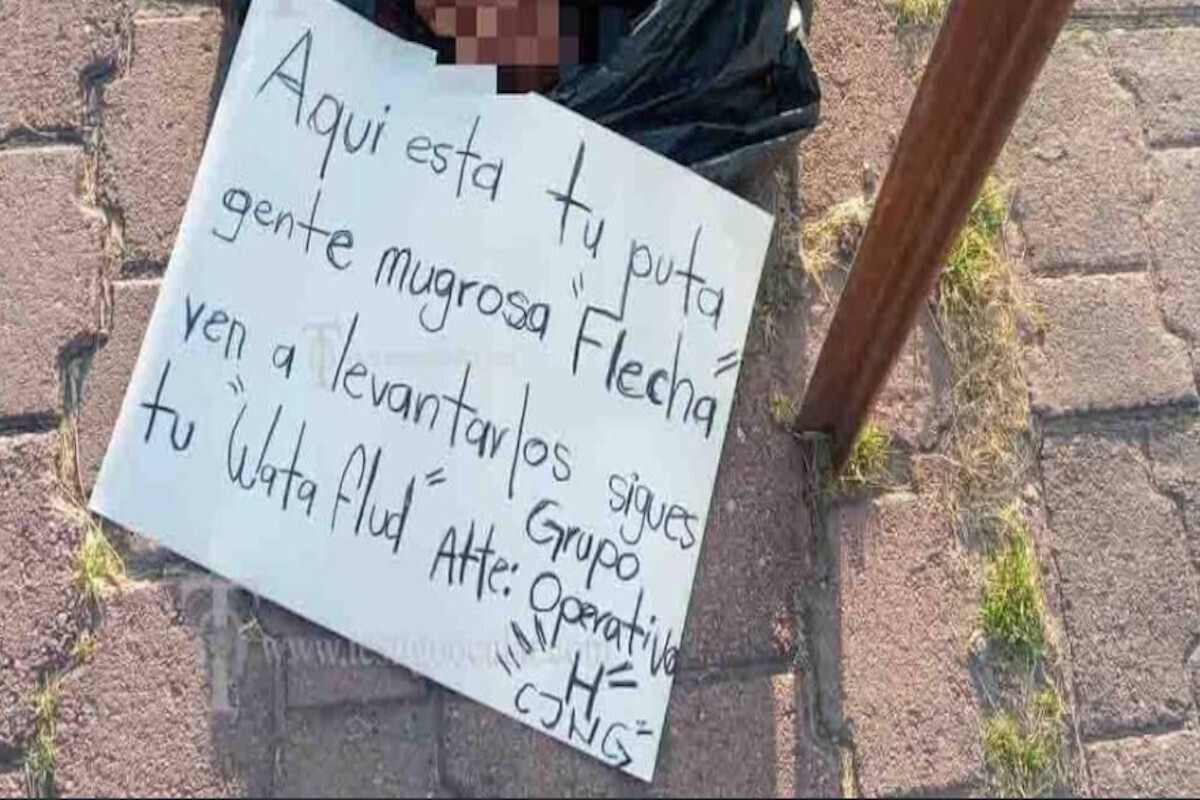 Aqui esta tu puta
gente mugrosa "Flecha"
ven a levantarlos sigues
tu "Wata flud" Grupo
Atte: Operativo
"H"
CJNG